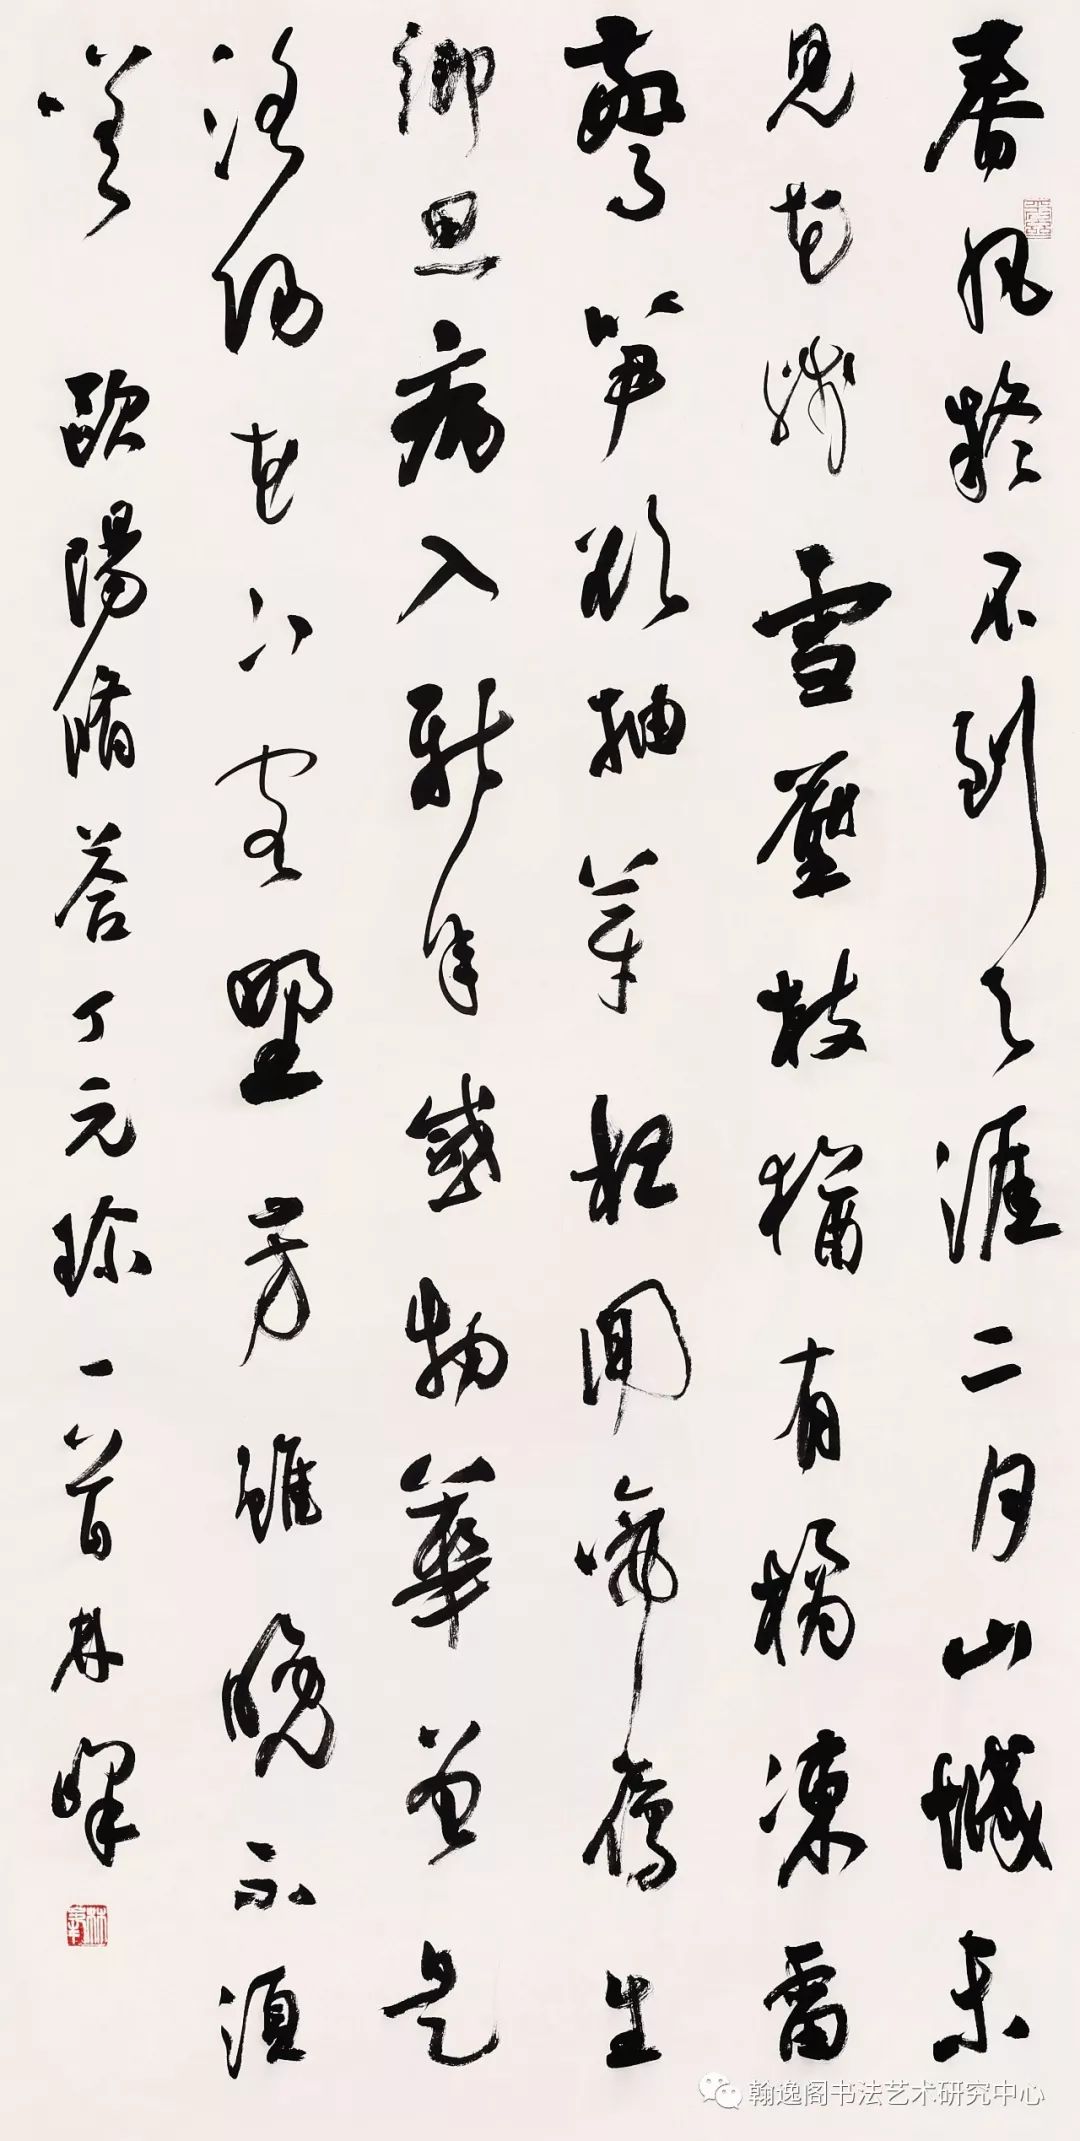 春風疑不到天涯二月山城未
見花殘雪壓枝猶有橘凍雷
驚笋欲抽芽夜聞啼雁生
鄉思病入新年感物華曾是
洛陽花下客野芳雖晚不須
嗟 歐陽脩荅丁元珍一首林
翰逸阁书法艺术研究中心